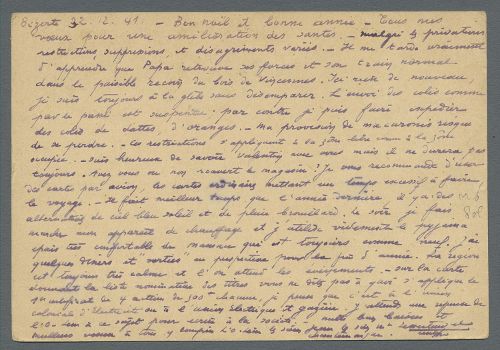 Bizerte 22.12.41. - Bon noël et bonne année - Tous mes
vœux pour une amélioration des santés. - malgré les privations
restrictions suppressions, et désagréments variés. - Il me tarde vraiment
d'apprendre que Papa retrouve ses forces et son train normal
dans le paisible recoin du bois de Vincennes. Ici rien de nouveau,
je suis toujours à la tête sans désemparer. L'envoi des colis comme
par le passé est suspendu par contre je puis faire expédier
des colis de dattes, d'oranges. - Ma provision de macaronis risque
de se perdre. - Les restrictions s'appliquent à la zone libre comme à la zone
occupée. - Suis heureux de savoir Valentin avec vous mais il ne durera pas
toujours. Avez vous ou non rouvert le magasin? je vous recommande d'user
des cartes par avion, les cartes ordinaires mettant un temps excessif à faire
le voyage. - Il fait meilleur temps que l'année dernière il y a des
alternatives de ciel bleu soleil et de pluie brouillard. le soir je fais
marcher mon appareil de chauffage et j'utilise le pyjama
épais très confortable de maman qui est toujours comme neuf. j'ai
quelques dîners et "sorties" en perspective pour la fin d'année. La région
est toujours très calme et l'on attend les évènements. - Sur la carte
donnant la liste nominative des titres vous ne dites pas à quoi s'applique le
certificat de 4 action de 500 chacune, je pense que c'est à l'Union
coloniale d'électricité ou à l'union électrique et gazière. j'attends une réponse de
à ce sujet pour écrire à la société. mille bons baisers et
meilleurs vœux à tous